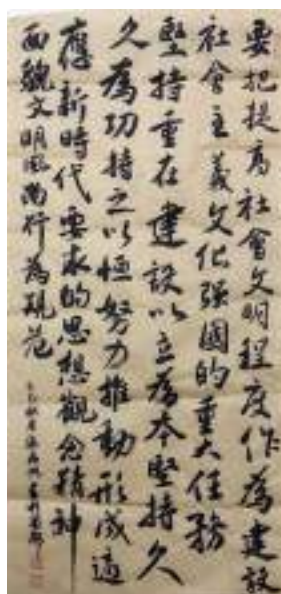 要把提高社會文明程度作為建設
社會主義文化强國的重大任務
堅持重在建設以立為本堅持久
久為功持之以恒努力推動形成適
應新時代要求的思想觀念精神
面貌文明風尚行為規范